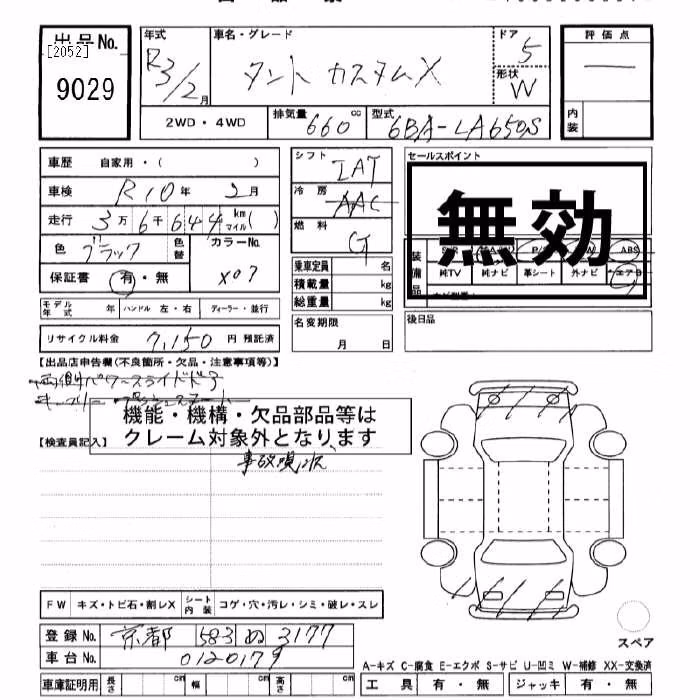 出品No.
[2052]
9029
年式 R3/2月
車名・グレード
タント カスタムX
ドア 5
形状 W
評価点
—
内装
2WD・4WD
排気量 660 cc
型式 6BA-LA650S
車歴 自家用・( )
車検 R10年 2月
走行 3万6千644 km マイル( )
色 ブラック 色替
カラーNo. X07
保証書 有・無
モデル年式 年 ハンドル 左・右 ディーラー・並行
リサイクル料金 7,150 円 預託済
シフト IAT
冷房 AAC
燃料 G
乗車定員 名
積載量 kg
総重量 kg
名変期限
月 日
セールスポイント
無効
装備品
ABS
純TV 純ナビ 革シート 外ナビ エアB
後日品
【出品店申告欄(不良箇所・欠品・注意事項等)】
両側パワースライドドア
機能・機構・欠品部品等は
クレーム対象外となります
【検査員記入】
事故現状
FW キズ・トビ石・割レX シート内装 コゲ・穴・汚レ・シミ・破レ・スレ
登録No. 京都 583 ぬ 3177
車台No. 0120179
スペア
A-キズ C-腐食 E-エクボ S-サビ U-凹ミ W-補修 XX-交換済
車庫証明用 長さ cm 幅 cm 高さ cm
工具 有・無 ジャッキ 有・無